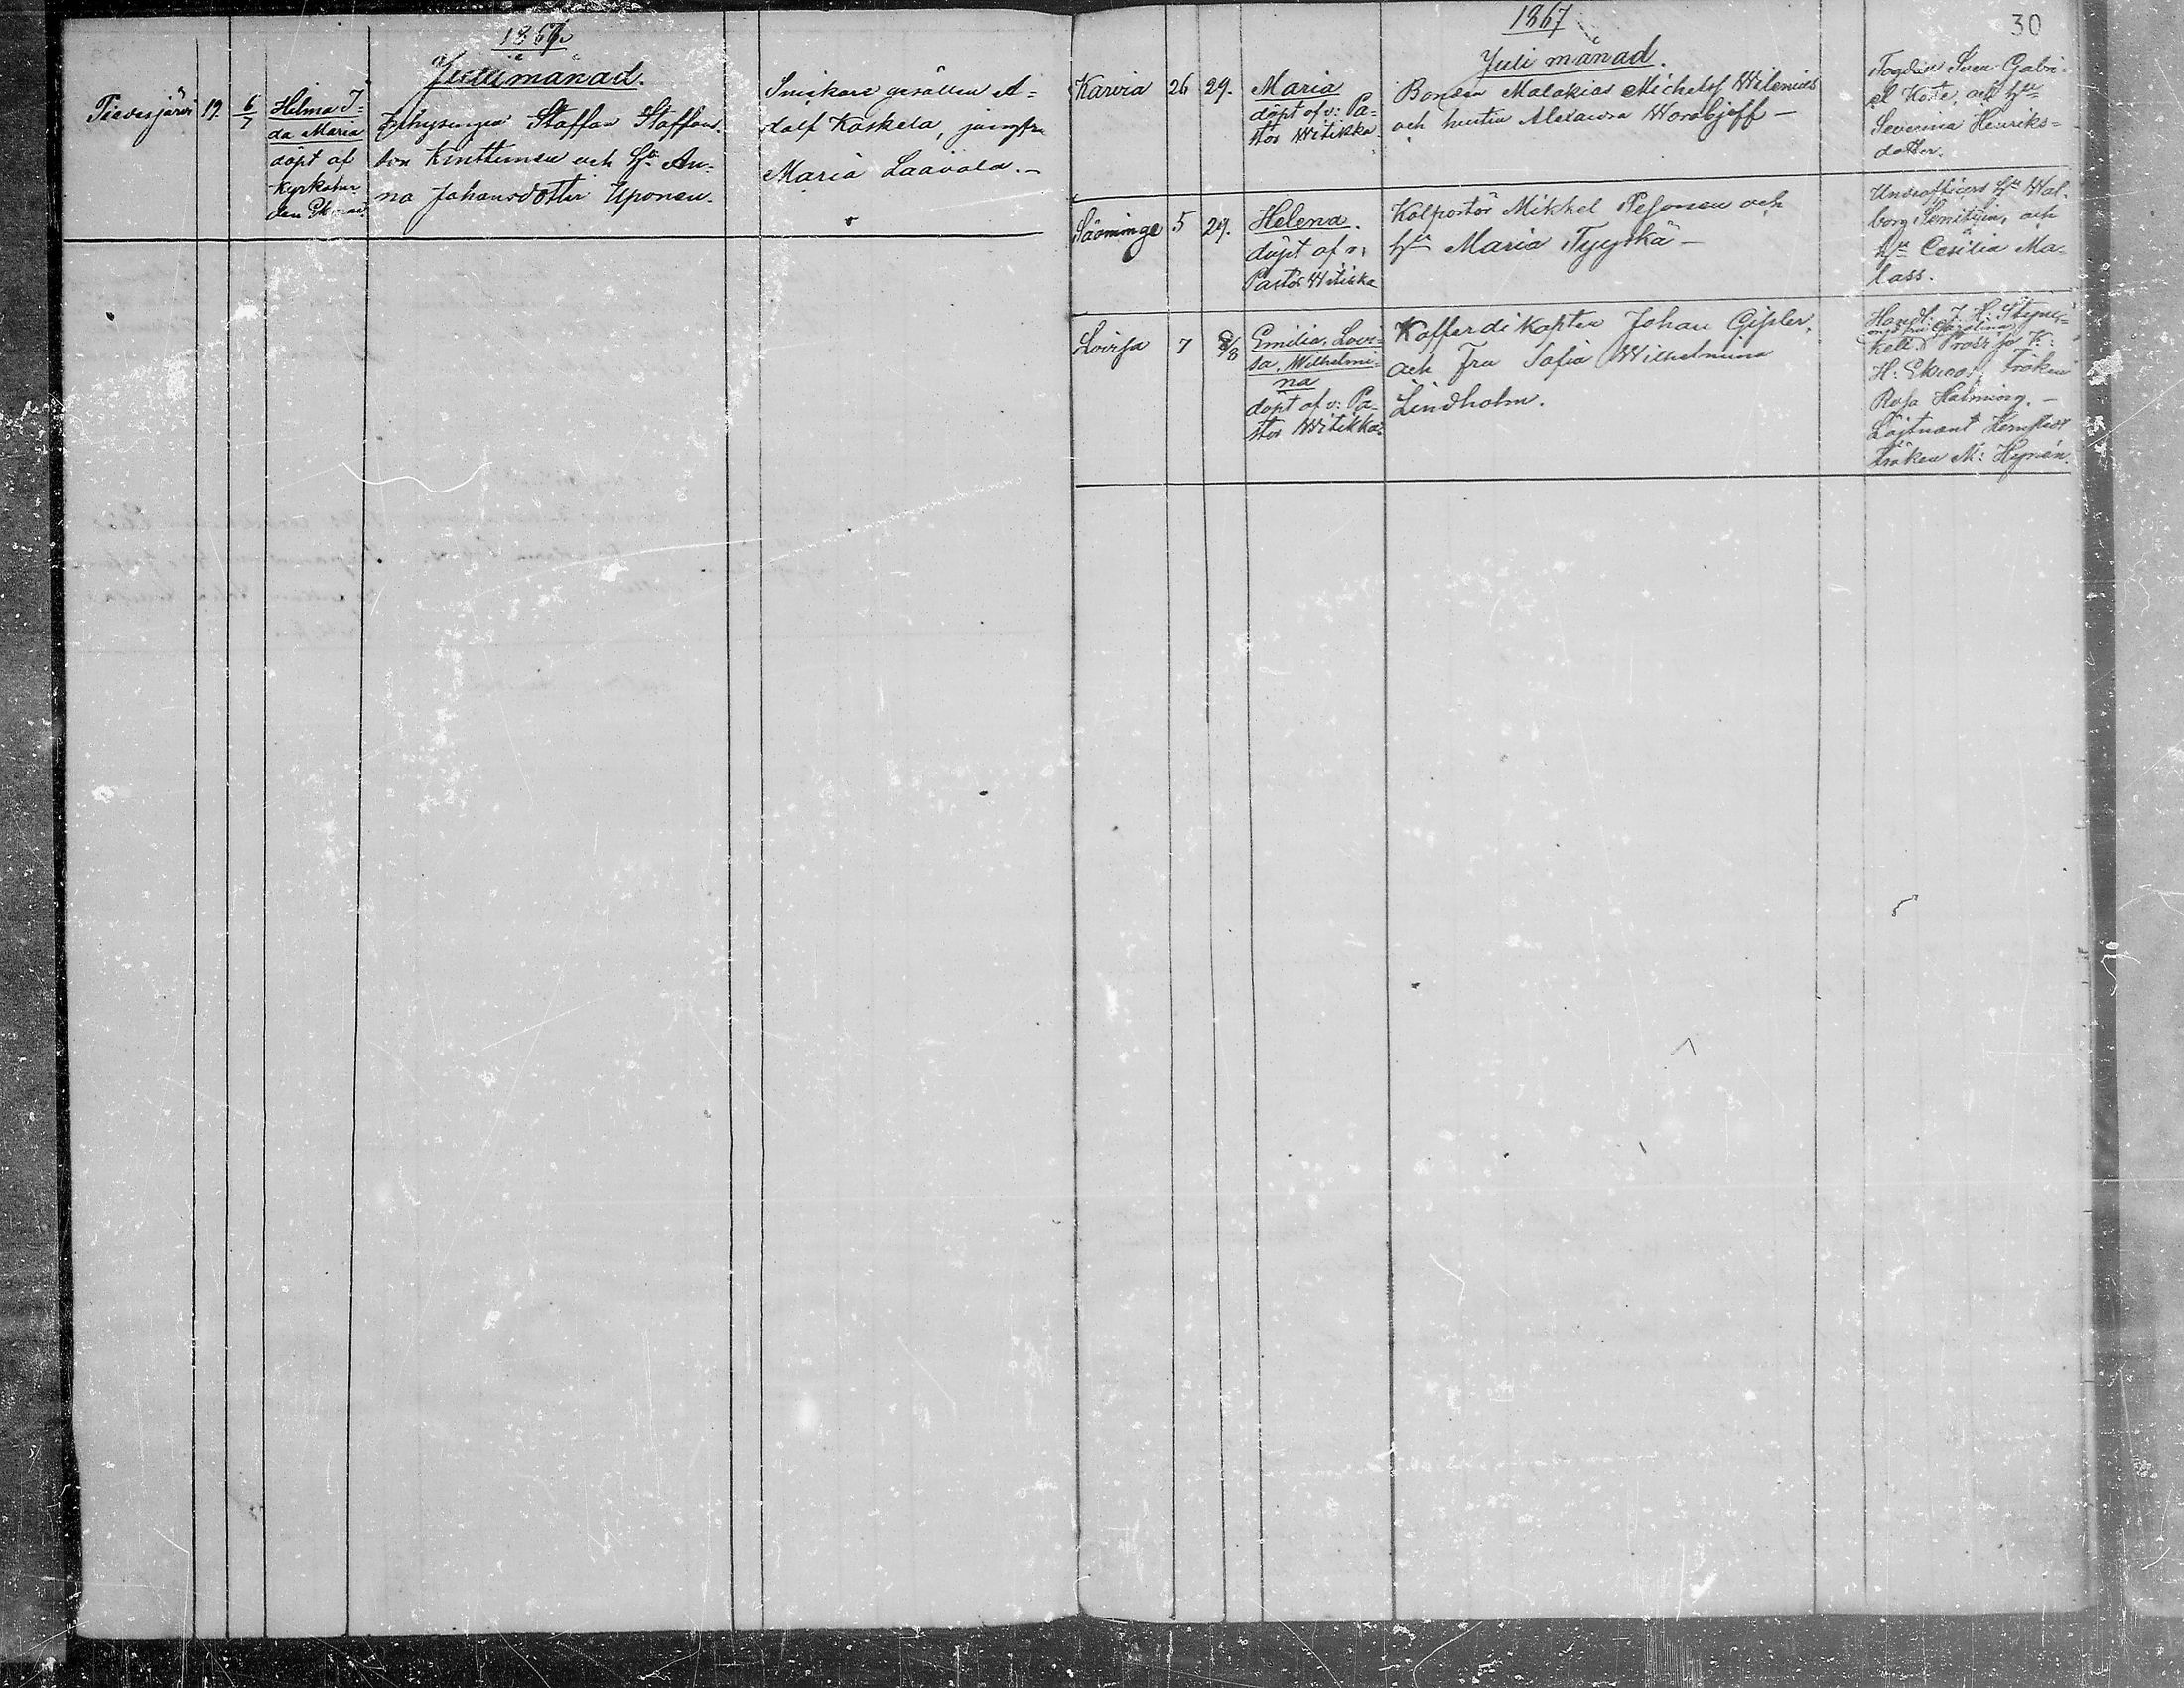 1867
Juli månad.
Pievesjärvi 19. 6/7 Helma I=
da Maria
döpt af
kyrkoher
den Ekman
Inhysingen Staffan Staffans
son Kinttunen och H. An-
na Johansdotter Uponen.
Snickare gesällen A=
dolf Koskela, jungfru
Maria Laavola.-
1867
30
Juli månad.
Karvia 26 29. Maria
döpt af v: Pa-
stor Witikka
Bonden Malakias Michelss Wilenius
och hustru Alexandra Worobjeff -
Sven Gabri-
el Kote, och Hu
Severina Henriks=
dotter.
Säominge 5 29. Helena.
döpt af v:
Pastor Witikka
Kolportör Mikkel Pesonen och
Hu Maria Tyyskä -
Underofficers Hu Wal
borg, och
Hu Cesilia Ma-
lass.
Lovisa 7 2/8 Emilia, Lovi-
sa, Wilhelmi-
na
döpt af v: Pa-
stor Witikka
Kofferdi Kapten Johan Gipler,
och Fru Sofia Wilhelmina
Lindholm.
Handl: J. H. Styrne
Carolina
H: Ekroos, Fröken
Rosa Halming. -
Löjtnant
Fröken M: Hymén.